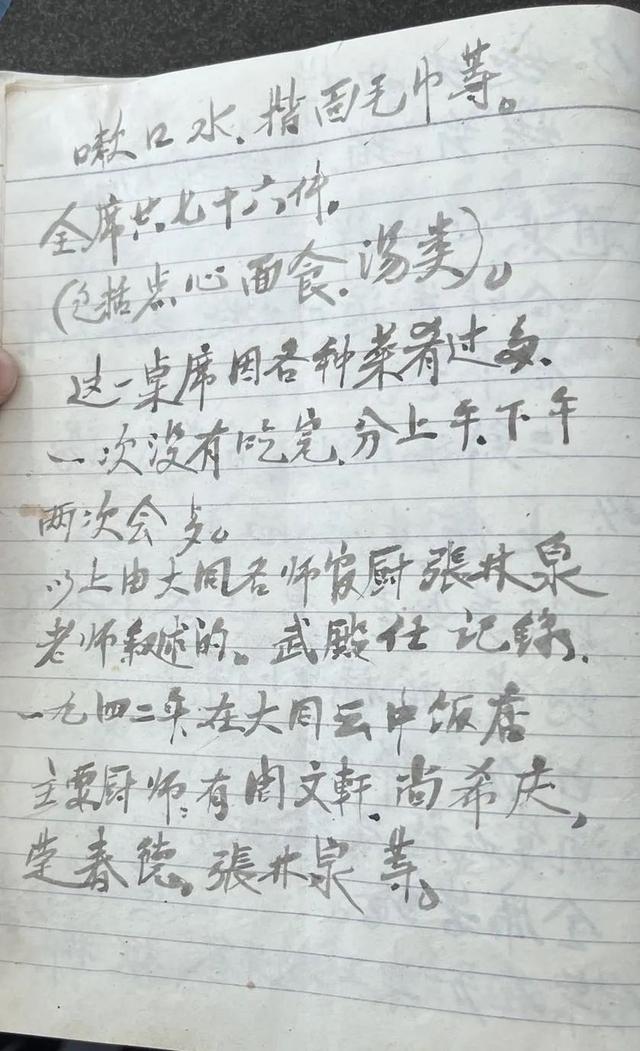 嗽口水、揩面毛巾等。
全席共七十六件.
(包括点心面食.汤类)。
这一桌席因各种菜肴过多.
一次没有吃完.分上午.下午
两次会多。
以上由大同名师官厨張林泉
老师叙述的。武殿仕记錄.
一九四二年在大同云中饭店
主要厨师:有周文軒.尚希庆,
春德。張林泉等。